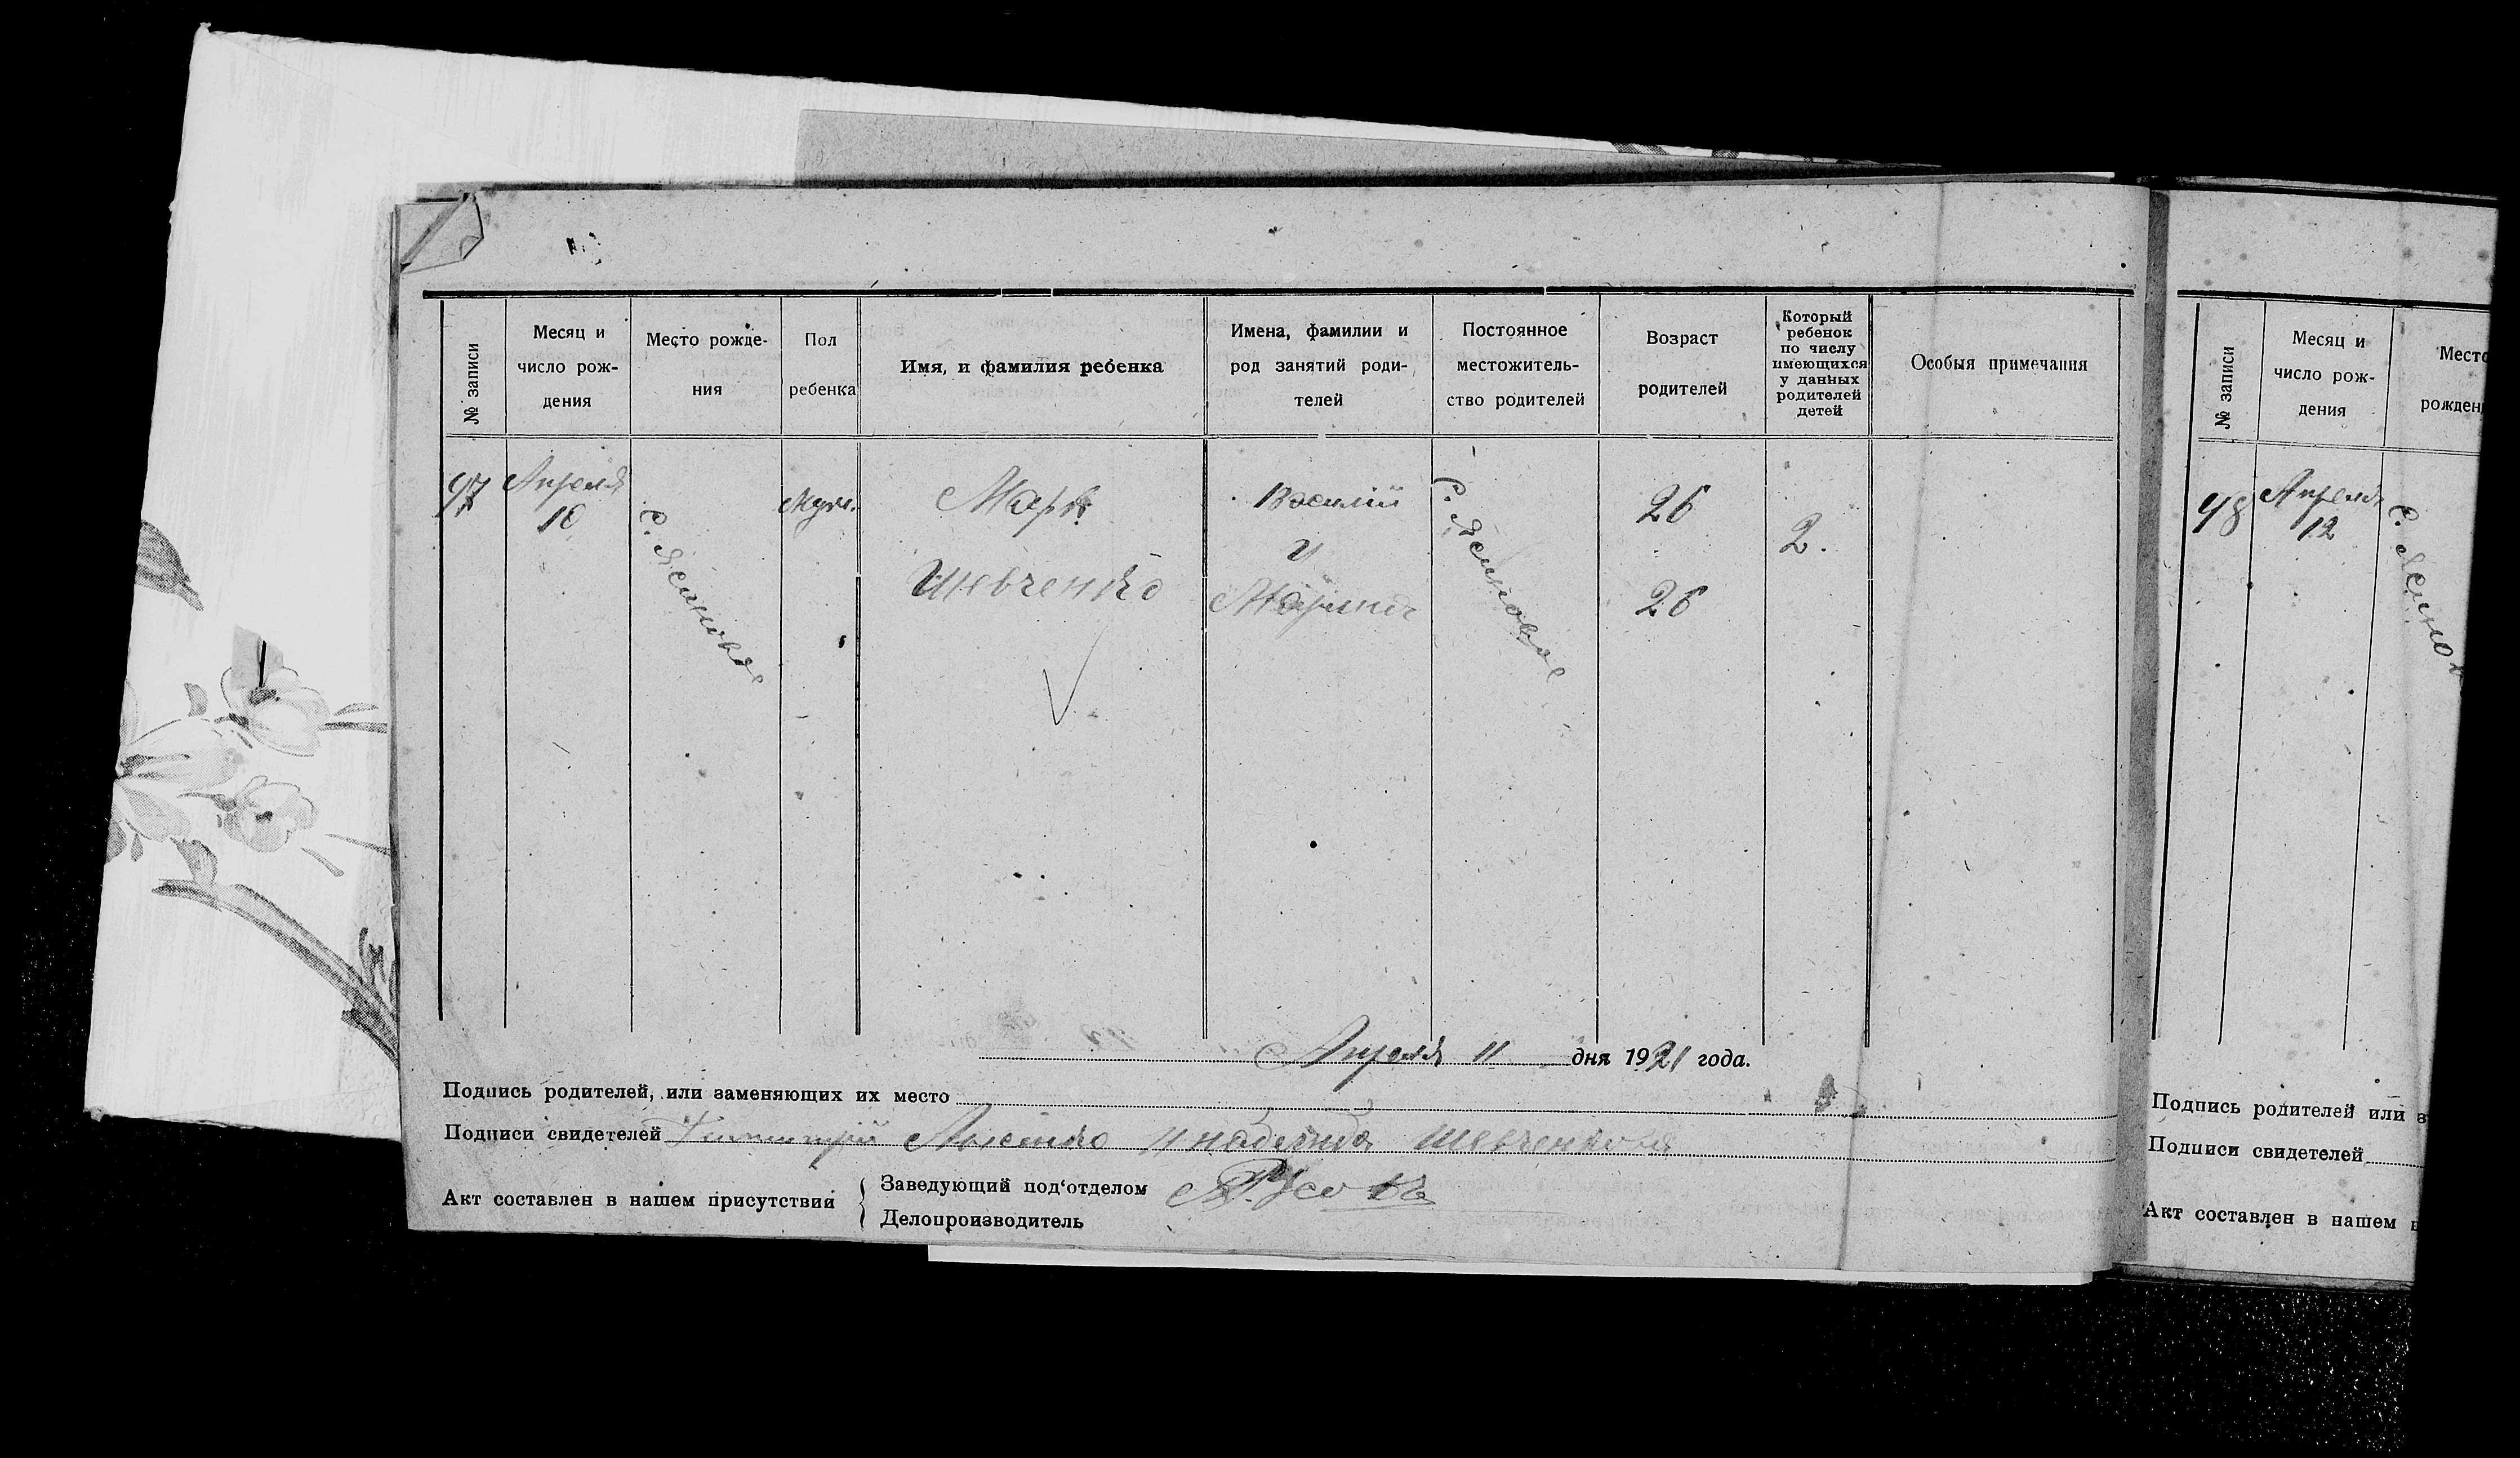 № записи
Месяц и
число рож-
дения
Место рожде-
ния
Пол
ребенка
Имя, и фамилия ребенка
Имена, фамилии и
род занятий роди-
телей
Постоянное
местожитель-
ство родителей
Возраст
родителей
Который
ребенок
по числу
имеющихся
у данных
родителей
детей
Особыя примечания
97
Апреля
10
с. Ясиновое
Муж.
Марк
Шевченко
Василий
и
Марина
с. Ясиновое
26
26
2.
Апреля 11 дня 1921 года.
Подпись родителей, или заменяющих их место
Подписи свидетелей Димитрий и надежда Шевченкова
Акт составлен в нашем присутствии
Заведующий под'отделом
Делопроизводитель
№ записи
Месяц и
число рож-
дения
Место
рожден
98
Апреля
12
с. Ясинов
Подпись родителей или з
Подписи свидетелей
Акт составлен в нашем п